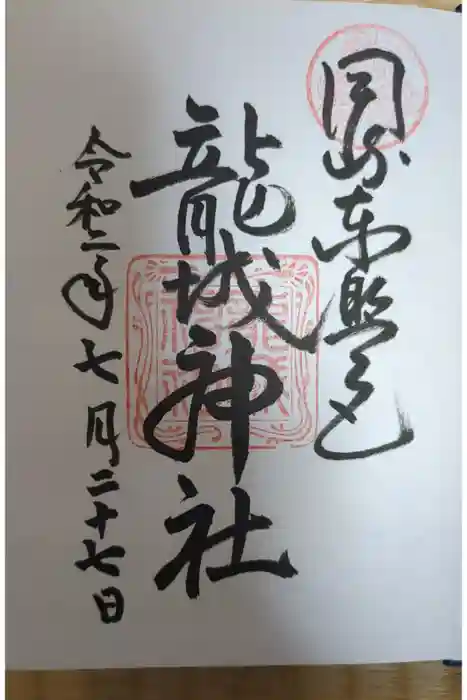 岡崎東照宮
龍城神社
令和二年七月二十七日